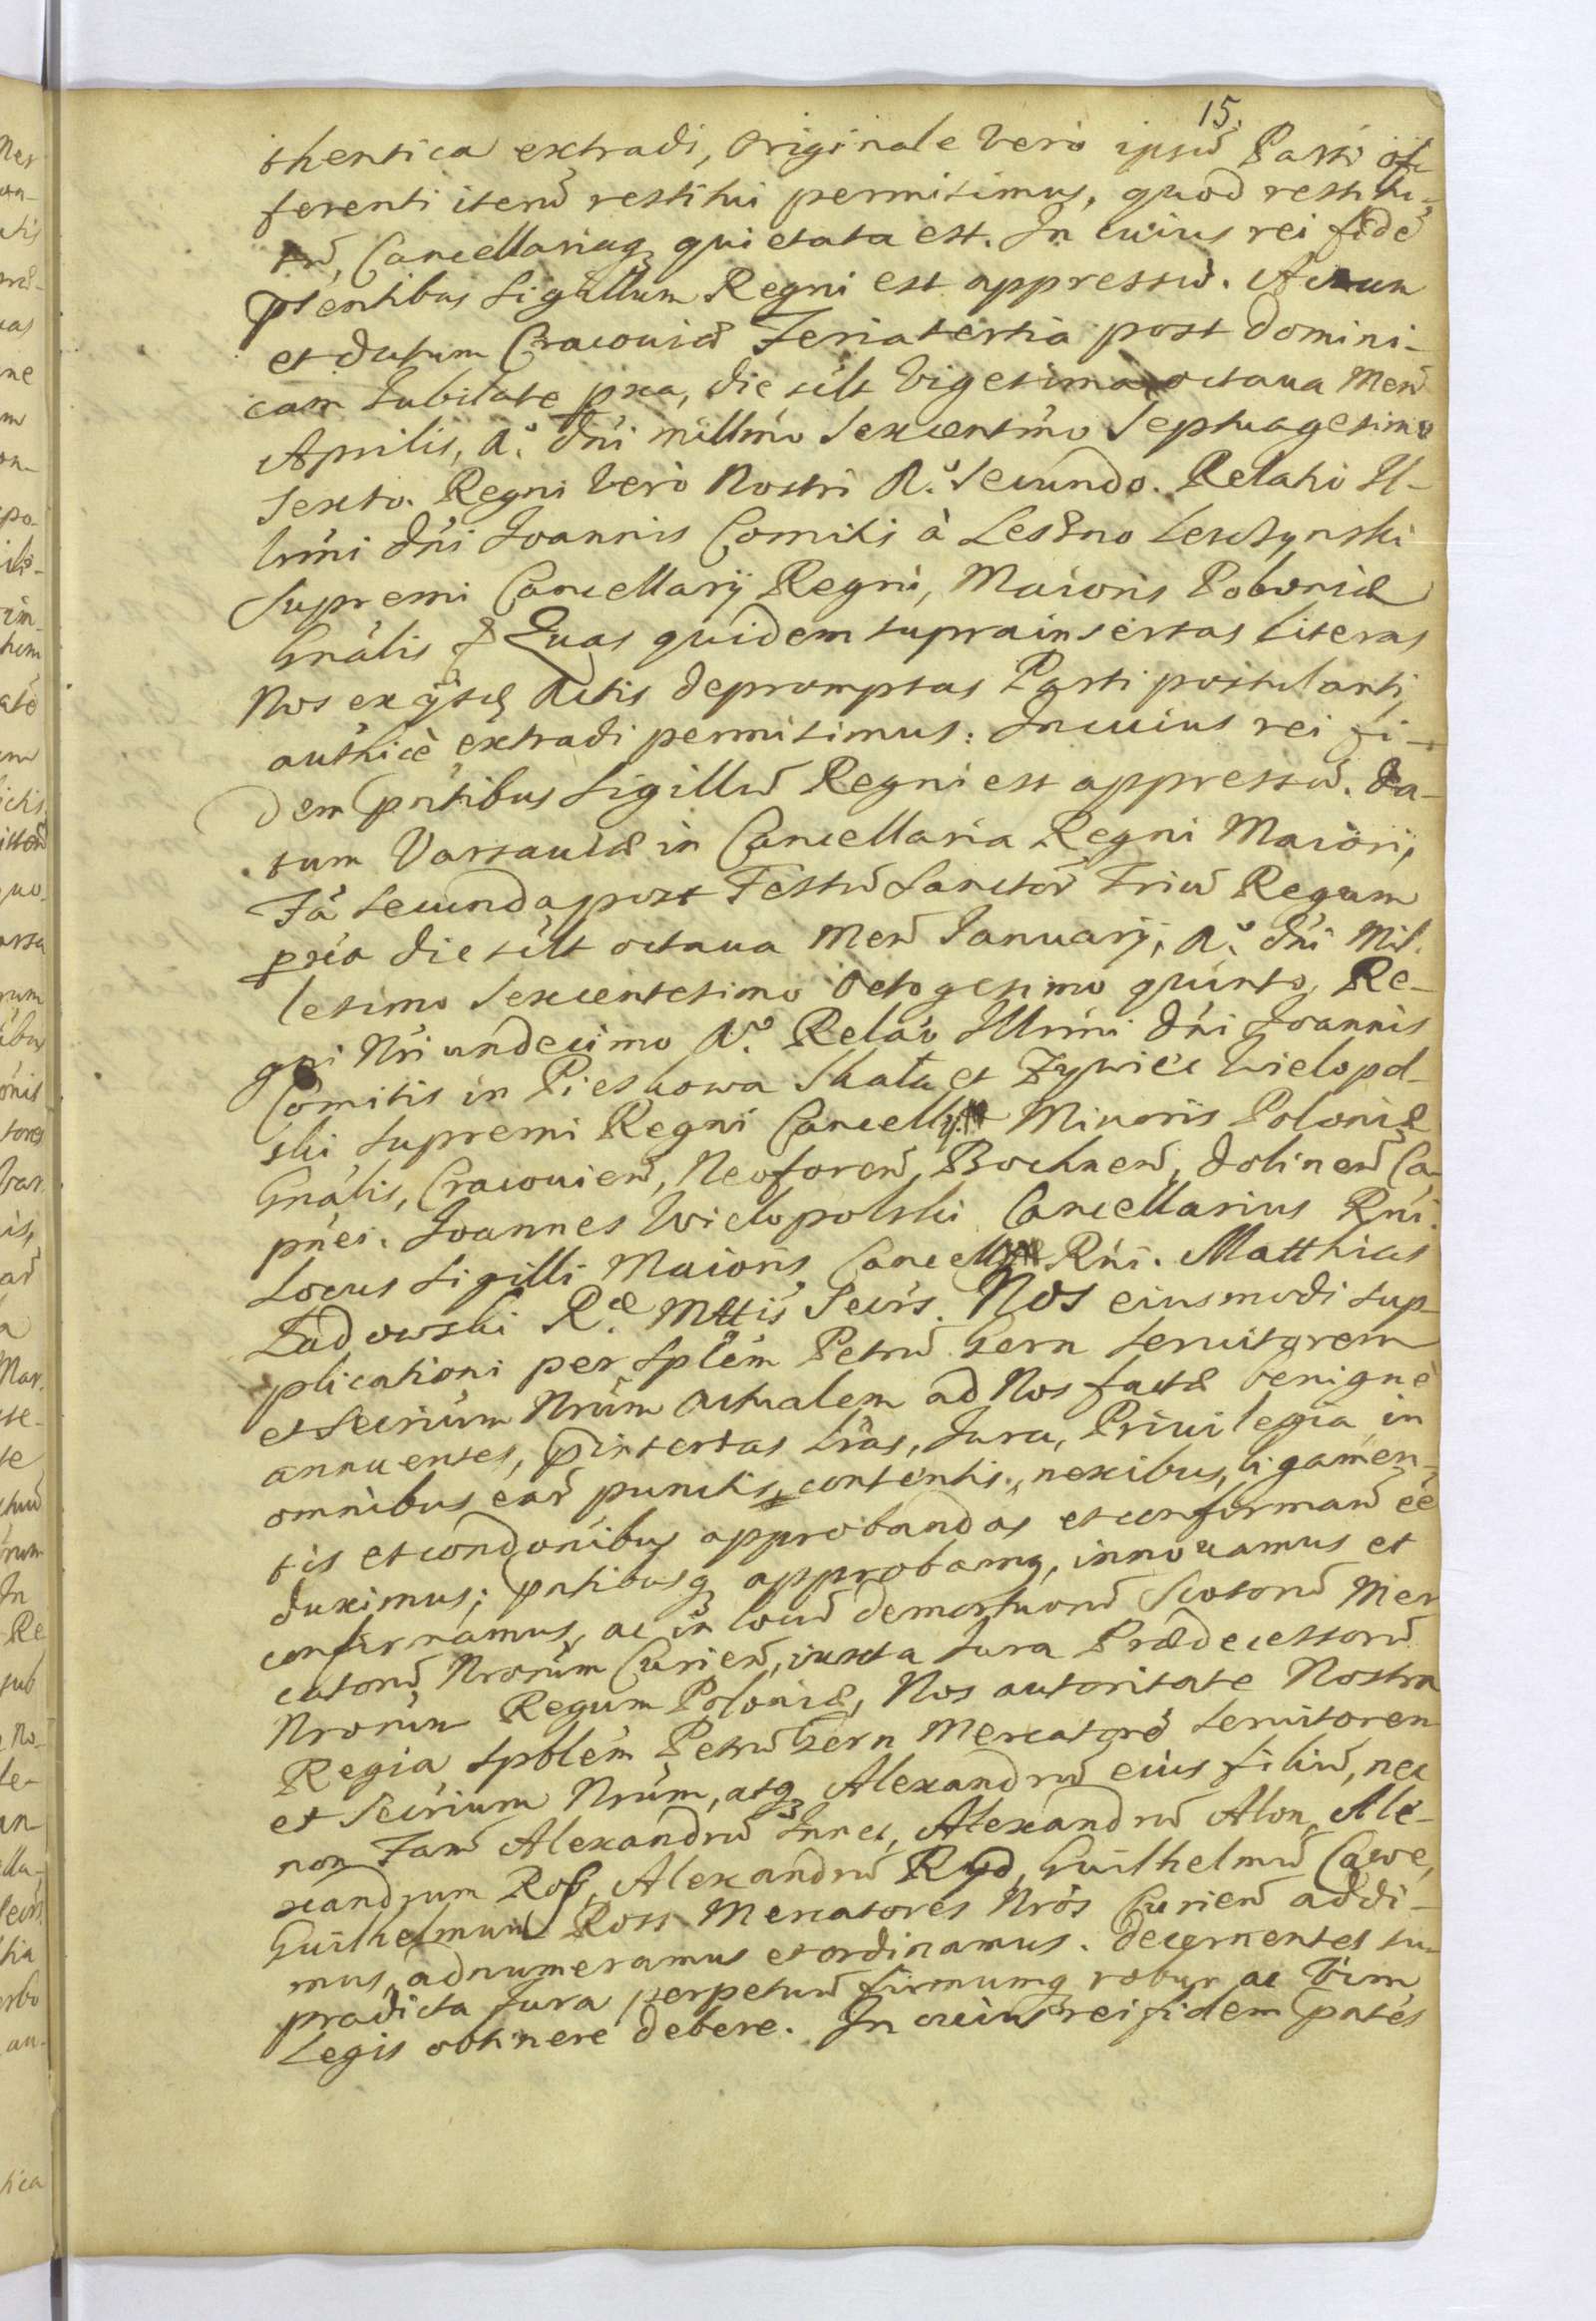 15.
thentica extradi, Originale verò ipsū Parti of-
ferenti iterū restitui permisimus, quod restitu-
tū, Cancellariaq quietata est. In cuius rei fidē
pſentibus Sigillum Regni est appressū. Actum
et datum Cracoviæ Feria tertia post Domini-
cam Jubilate pxa, die silt Vigesima octava Men
Aprilis, A.º dńi millmo Sexcentmo Septuagesimo
Sexto. Regni verò Nostri A.º Secundo. Relatio Il-
lrmi dńi Joannis Comitis à Leszno Leszczynski
Supremi Cancellarij Regni, Maioris Poloniæ
Gnális & Quas quidem suprainsertas literas
Nos ex ijsdē Actis depromptas Parti postulanti,
authicè extradi permisimus: In cuius rei fi-
dem pńtibus Sigillū Regni est appressū. Da-
tum Varsaviæ in Cancellaria Regni Maiori,
Fá secunda post Festū Sanctor Triū Regum
pxia die silt octaua Men Januarij, A.º dńi Mil-
lesimo Sexcentesimo Octogesimo quinto, Re-
gni Nri undecimo A.º Relaō Illrmi dńi Joannis
Comitis in Pieskowa Skała et Zywiec Wielopol-
ski supremi Regni Cancellrij Minoris Poloniæ
Gnális, Cracovien, Neoforen, Bochnen, Dolinen Ca-
pnei. Joannes Wielopolski Cancellarius Rńi.
Locus Sigilli Maioris Cancell Rńi. Matthias
Ladowski R.æ Mttis Secrs. Nos eiusmodi sup-
plicationi per Splem Petrū Gern servitorem
et Secrium Nrum actualem ad Nos factæ benignè
annuentes, pinsertas Lras, Jura, Privilegia, in
omnibus eār punctis, contentis, nexibus, ligamen-
tis et condonibus approbandas et confirman eē
duximus; pntibusq approbamq, innovamus et
confirmamus, ac in locū demortuorū Scotorū Mer
catorū Nrorum Curien, iuxta Jura Prædecessorū
Nrorum Regum Poloniæ, Nos autoritate Nostra
Regia Spblem Petrū Gern Mercatorē servitorem
et Secrium Nrum, atq Alexandrū eius filiū, nec
non Fam Alexandrū Innes, Alexandrū Alon, Ale-
xandrum Ross, Alexandrū Ryd, Guilhelmū Cawe,
Guilhelmum Ross Mercatores Nros Curien addi-
mus, adnumeramus et ordinamus. Decernentes su-
pradicta Jura perpetuū firmumq robur ac Vim
Legis obtinere debere. In cuius rei fidem pntes